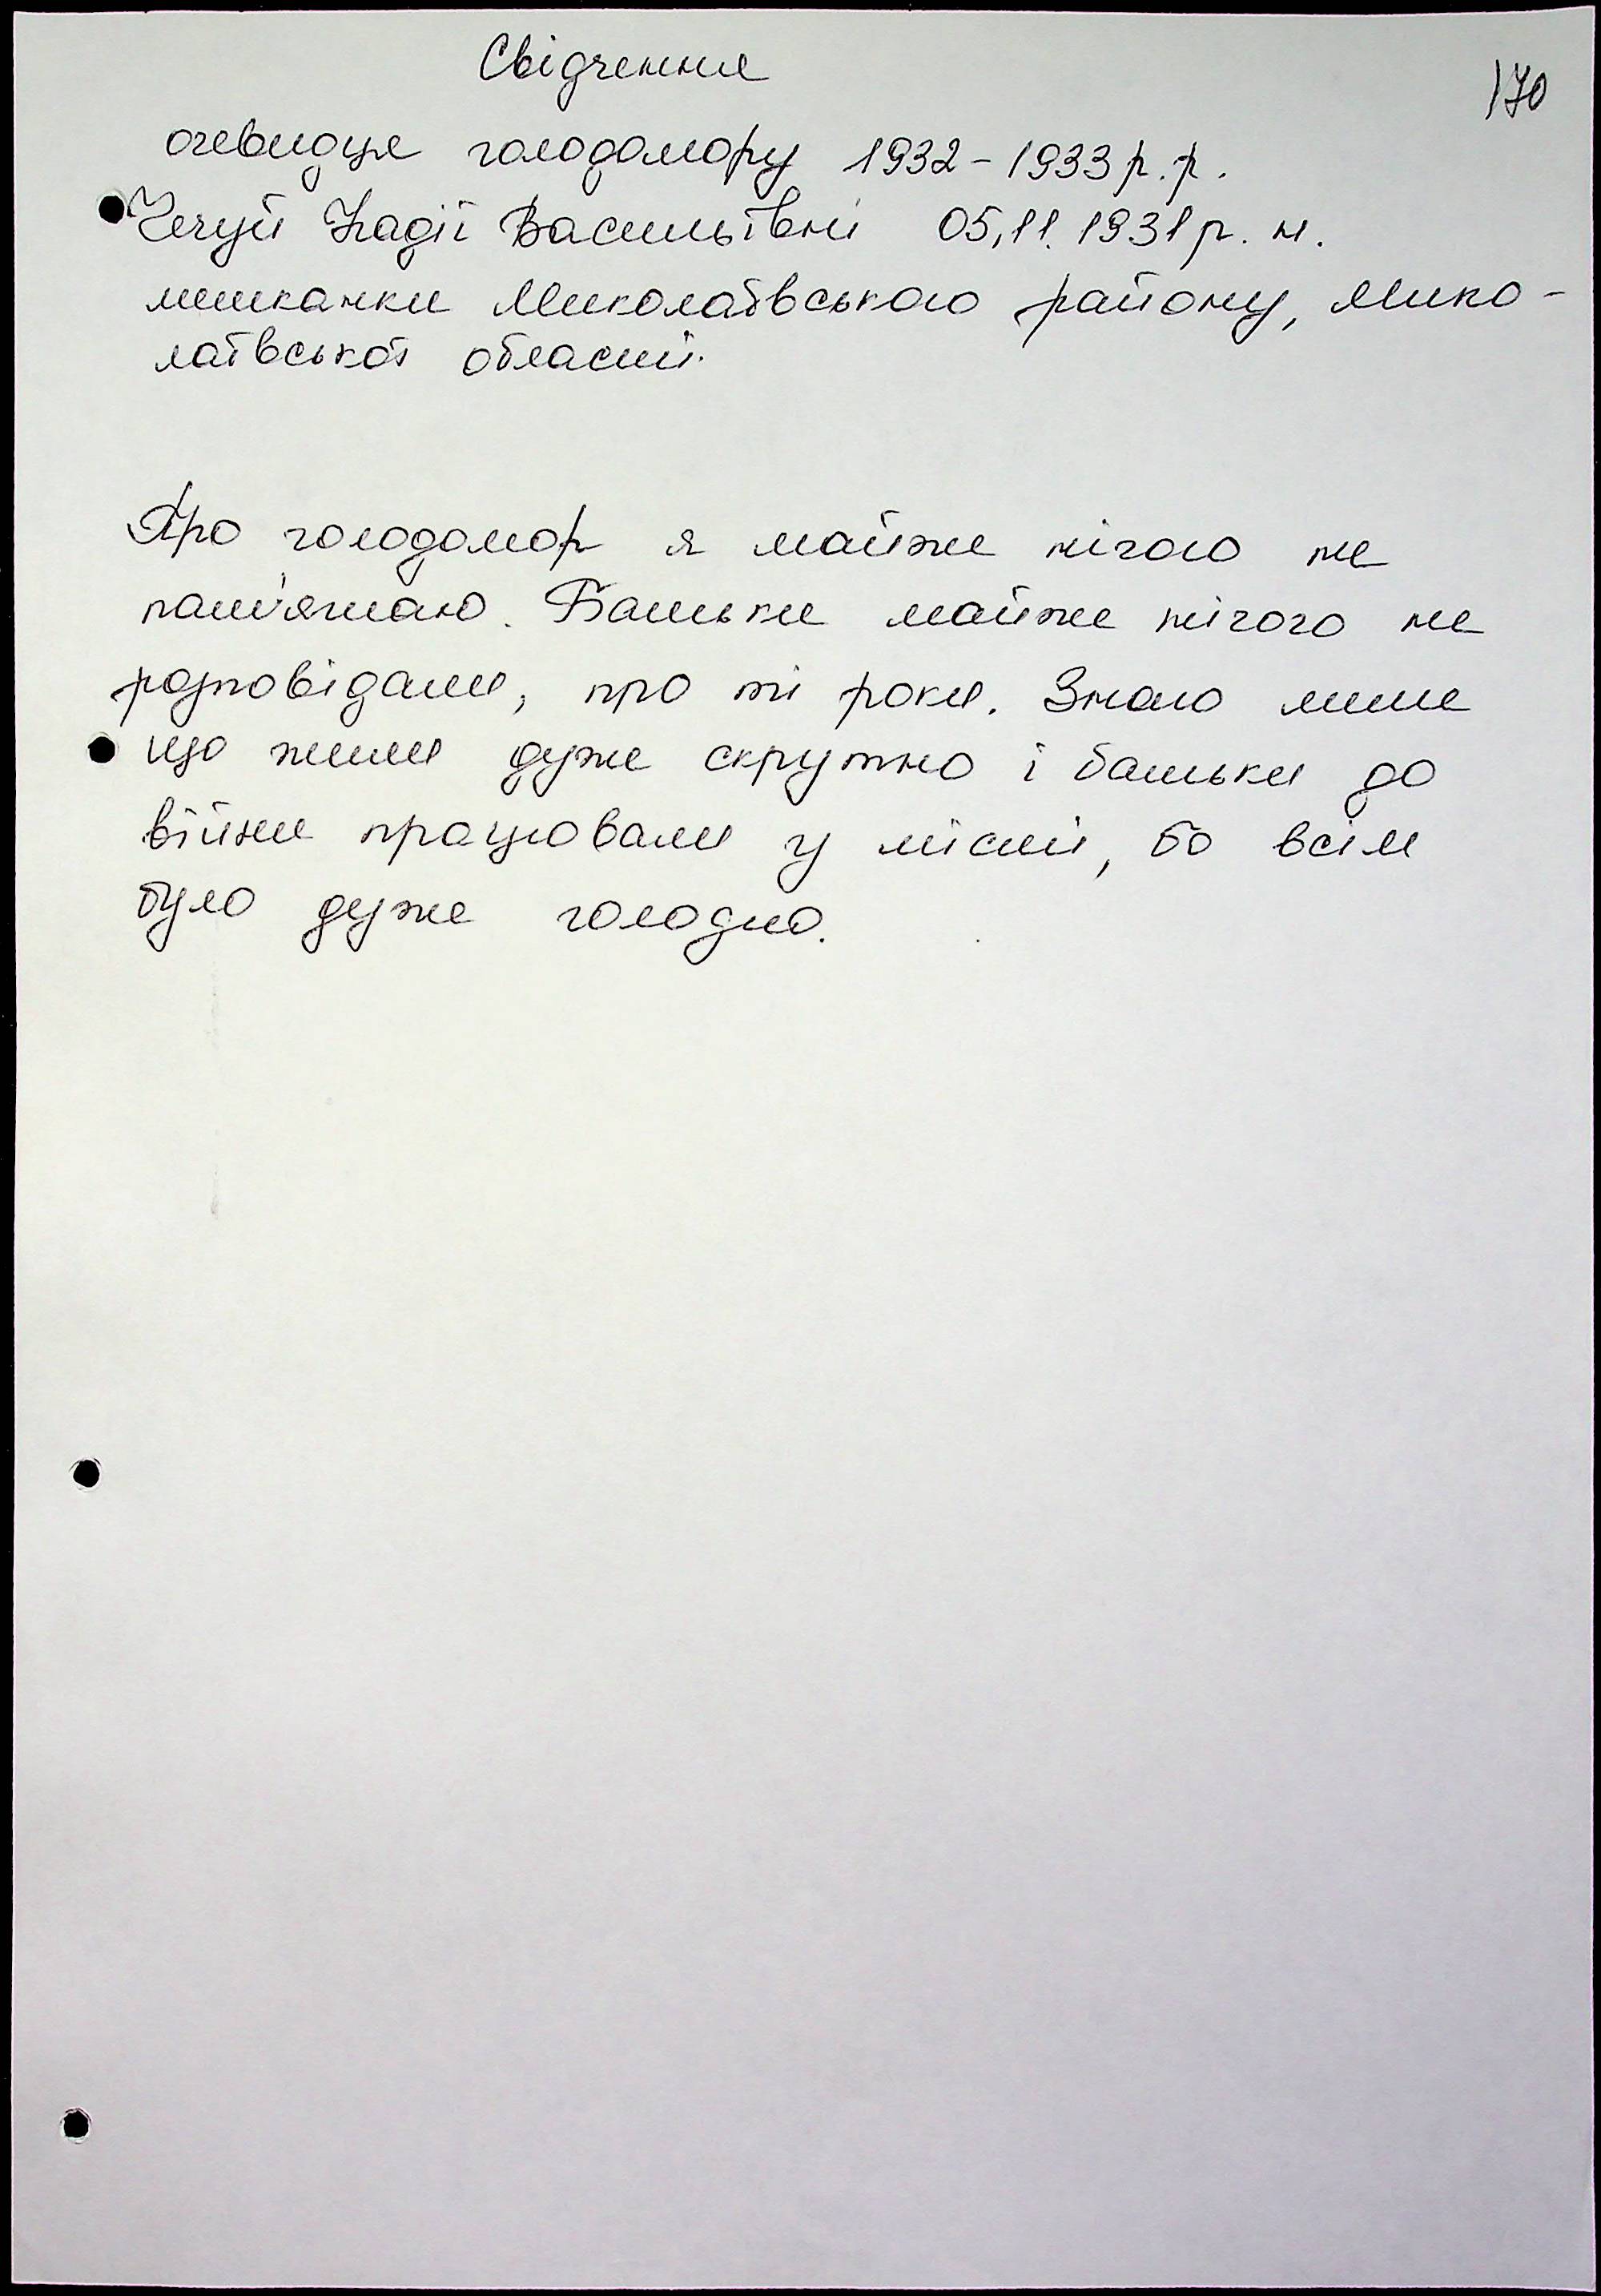 Свідчення
170
очевидця голодомору 1932-1933 р.р.
Чечуй Надії Василівні 05,11.1931 р. н.
мешканки Миколаївського району, Мико-
лаївської області.
Про голодомор я майже нічого не
пам'ятаю. Батьки майже нічого не
розповідали, про ті роки. Знаю лише
що жили дуже скрутно і батьки до
війни працювали у місті, бо всім
було дуже голодно.